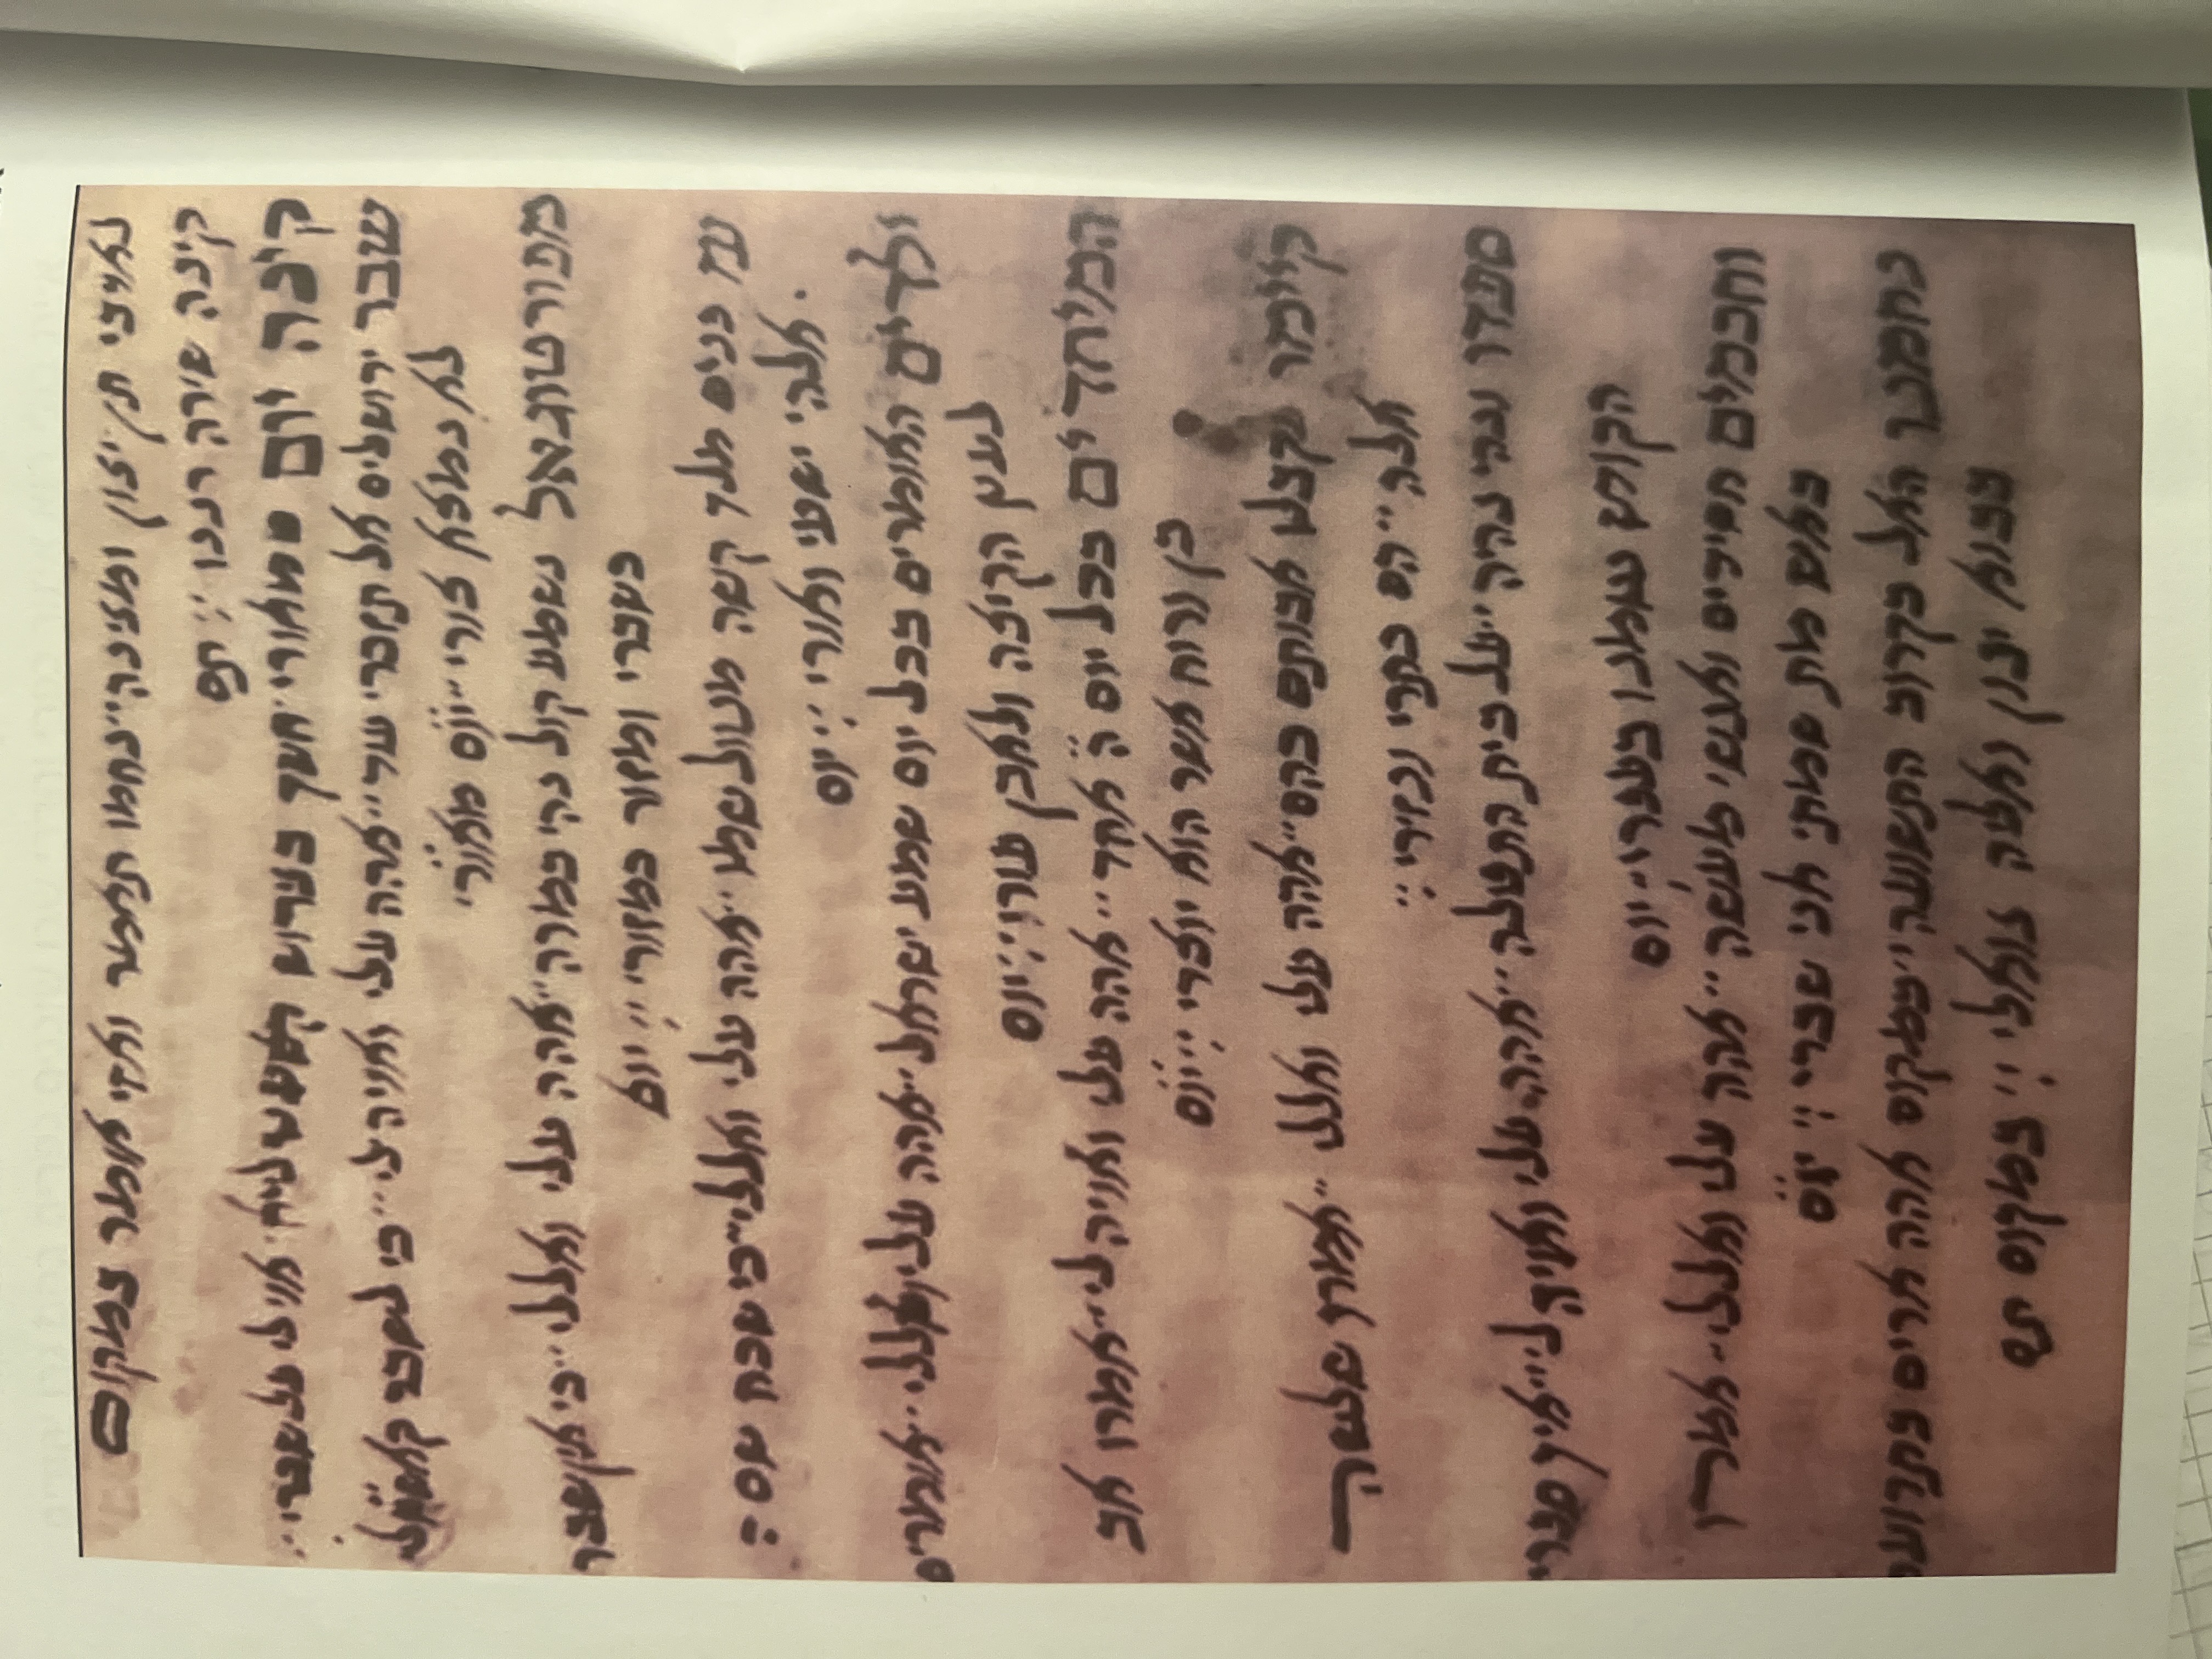 לאויבי תן יגון ומגינה״נחמו תאמר ואזי אומר במקום
קינה שירה רננו ׃ תם
קינה יום מאורי חשך בגירוש אוי לי על שברי ׃
שבר ירושלים אל תזכרי עוד״אהה עלי ואויה לי״כי לשבר
לא נמצא צורי״יום מאורי
מפורטוגאל נשמע קול נהי במרה״אהה עלי ואללי״כי אין שבר
כשברי ומזור כמזורי ׃ יום
עת בנים מלך קשה מטול שמע״אהה עלי ואללי״כי שכח שם ה׳
אלהי ישעי ואורי ׃ יום
ילדים האומרים בכל יום שמע ישראל״אהה עלי ואללי״אומרים
לעץ הקיצה ולאבן עורי ׃ יום
המיחדים בכל יום ה׳ אחד״אהה עלי ואויה לי״אמרו אב
בן ורוח אשר הוא יוצרי ׃ יום
קיימו וקבלו אבותם בהם״אהה עלי ואללי״אמרו שלשה
אלה״הם כתרי ונזירי ׃
ספדו ונהי נהיה״על בית התפולה״אהה עלי ואויה לי״איך ספרי
הקודש נטמנו בעפרי״יום
וחכמים חסידים ואנשי מעשה״אהה עלי ואללי״אמרו
באש מות שמתי אני שברי ׃ יום
נחמנו האל בקרוב התשועה״במקום אהה ארים בתרועה
בבוא ינון ואליה גואלי ׃ במקום תם